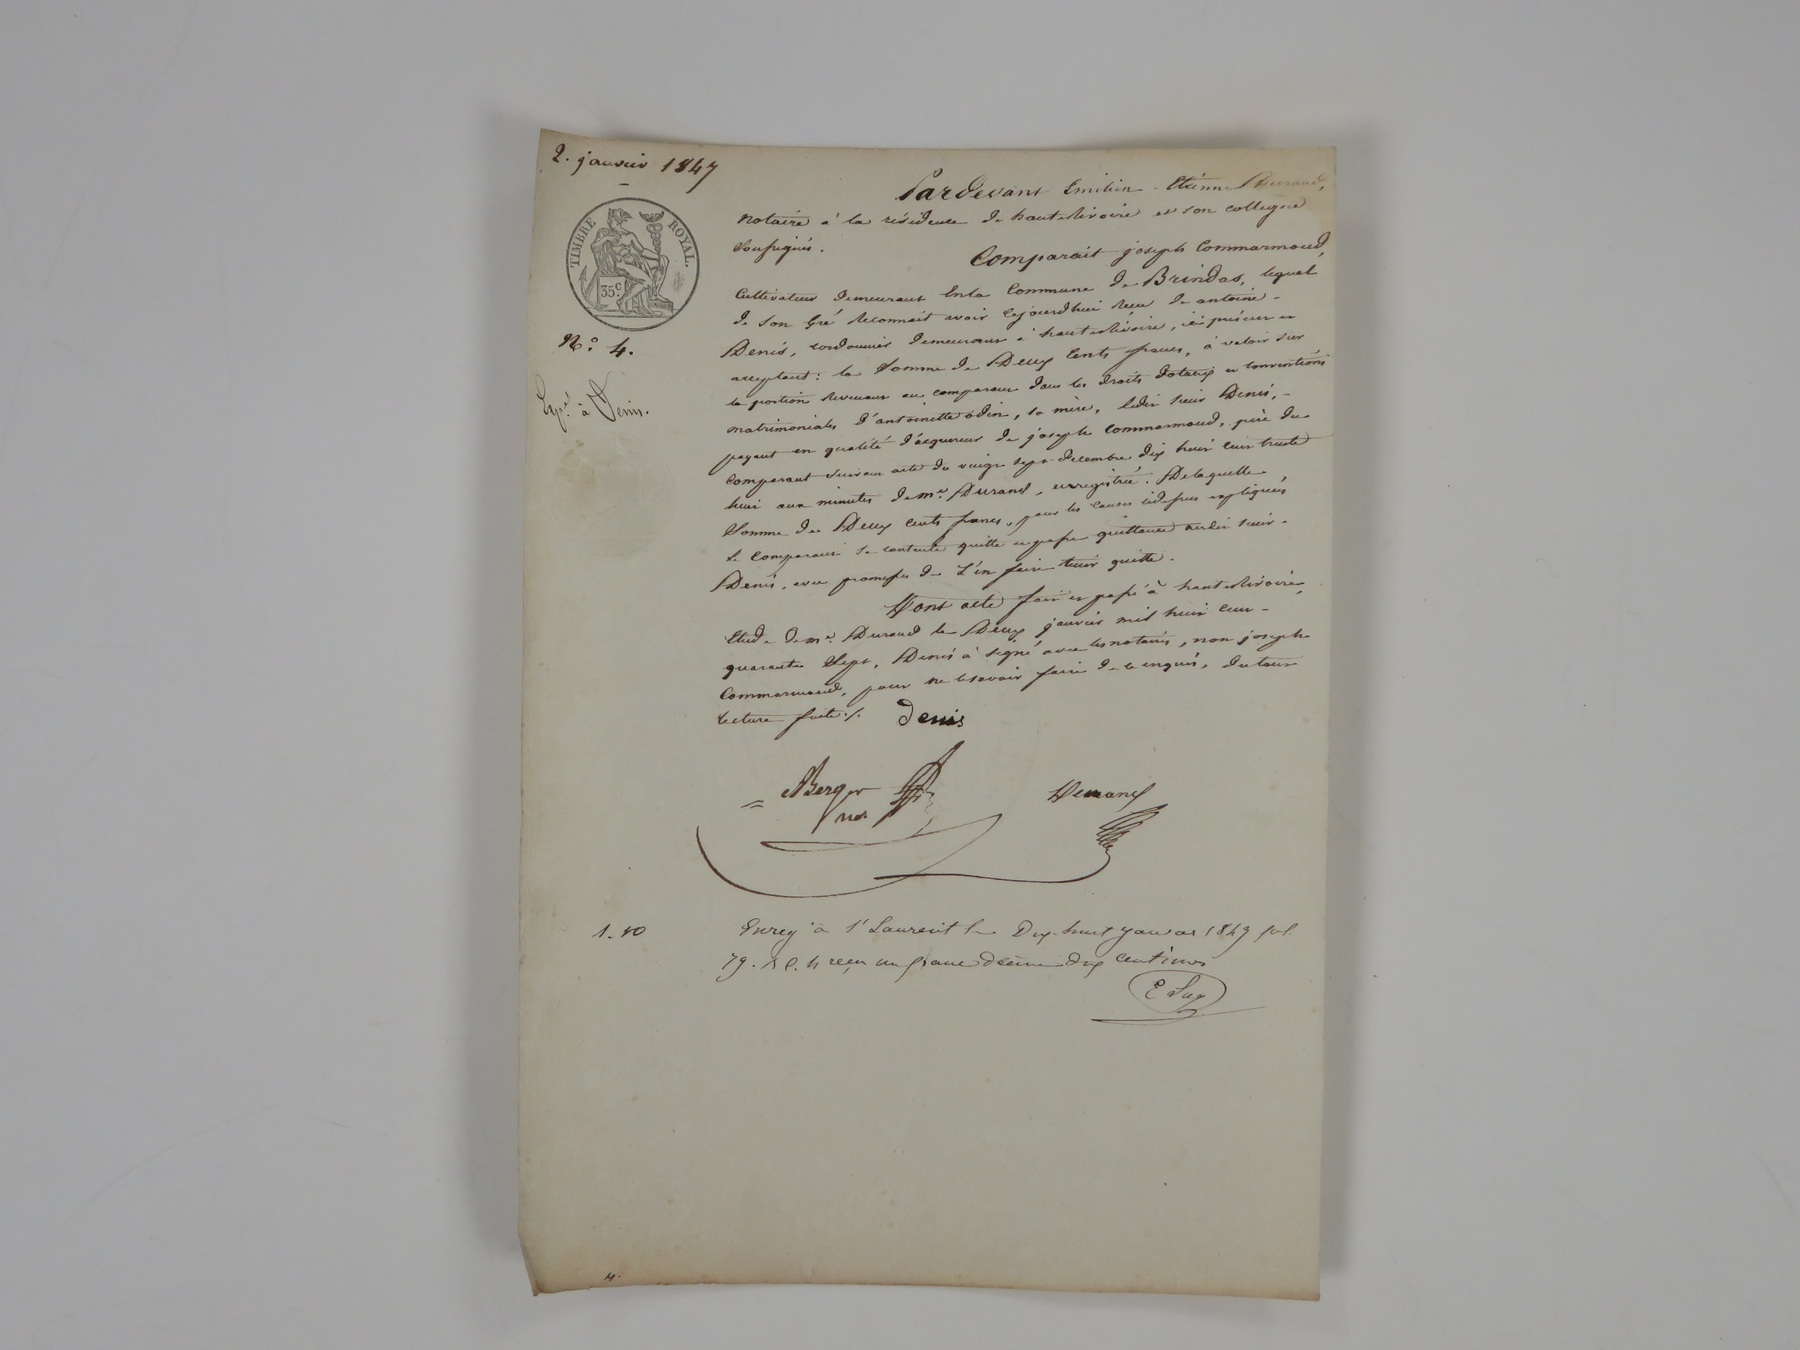 2. janvier 1847
Pardevant Emilien - Etienne Durand,
TIMBRE ROYAL.
35 c.
notaire à la résidence de hauterivoire et son collegue
soussignés.
Comparait joseph Commarmond,
Cultivateur demeurant en la Commune de Brindas, lequel
de son gré reconnait avoir cejourdhui recu de antoine -
N.o 4.
Denis, cordonnier demeurant à hauterivoire, ici présent et
acceptant : la somme de Deux cents francs, à valoir sur
Exp.on à Denis.
la portion revenant au comparant dans les droits dotaux et conventions
matrimoniales d'antoinette odin, sa mère, ledit sieur Denis, -
payant en qualité d'acquereur de joseph Commarmond, père du
comparant suivant acte du vingt sept decembre dix huit cent trente
huit aux minutes de me. Durand, enregistrée. De laquelle
somme de Deux cents francs, pour les causes cidessus expliquées
le comparant se contente quitte et passe quittance audit sieur -
Denis, avec promesse de l'en faire tenir quitte.
Dont acte fait et passé à hauterivoire,
Etude de me. Durand le Deux janvier mil huit cent -
quarante sept, Denis à signé avec les notaires, non joseph
Commarmond, pour ne le savoir faire de ce enquis, du tout
lecture faite ./.
Denis
Berger
nre.
Durand
1. 10
Enreg. à St Laurent le Dix huit janvier 1847 fol.
79. Ro. c. h reçu un franc décime dix centimes